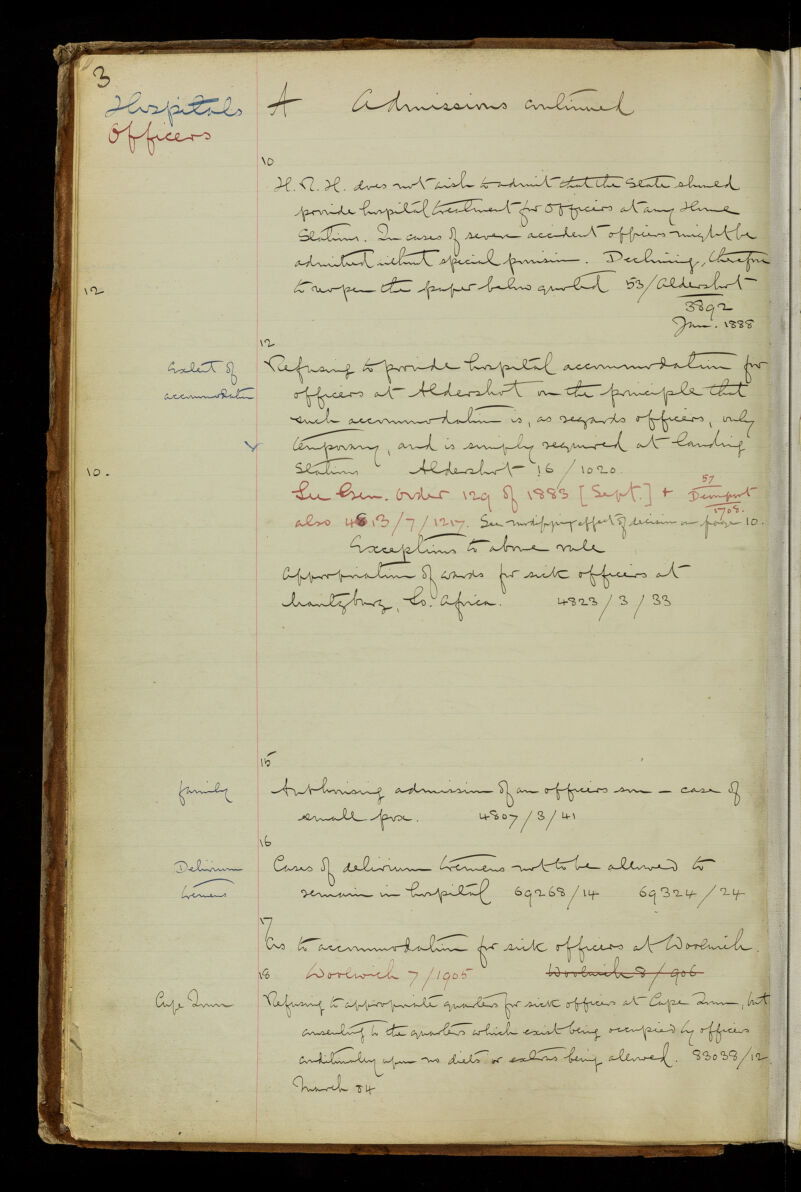 3
Hospitals
Officers
A Admissions continued
10
H.R.H. does not wish to admit that the State should
provide hospital treatment for Officers at any Home
Station. In cases of severe accident officers might be
admitted without special provision. Declining, therefore
12
to reopen the paper below quoted 53/Aldershot
3892
Jan. 1888
12
Extent of
accommodation
Refusing to provide hospital accommodation for
officers at Aldershot on the principle that
such accommodation is, as regards officers, only
temporary, and is simply required at landing
10.
Stations Aldershot 16/1020.
See Gen. Order 129 of 1883 [Sept.] + 57
Devonport
1708.
also 4813/7/1217. See modifying effect of decision on page 10.
Exceptions to above rule
Appropriation of wards for sick officers at
Maritzburg, So. Africa. 4823/3/33
15
family
Authorising admission of an officers son - case of
small pox. 4807/3/41
16
Delirium
tremens
Cases of delirium tremens not to be allowed to
remain in hospital 69268/14 69324/24
17
As to accommodation for sick officers at Woolwich.
Woolwich 7/1905 Woolwich 8/906
18
Cape Town
Refusing to appropriate quarters for sick officers at Cape Town, but
consenting to the quarters which exist being occupied by officers
conditionally upon no diets or extras being allowed. 83038/12
March 84